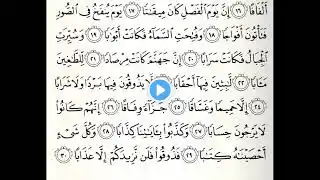 أَلْفَافًا ١٦ إِنَّ يَوْمَ الْفَصْلِ كَانَ مِيقَاتًا ١٧ يَوْمَ يُنفَخُ فِي الصُّورِ
فَتَأْتُونَ أَفْوَاجًا ١٨ وَفُتِحَتِ السَّمَاءُ فَكَانَتْ أَبْوَابًا ١٩ وَسُيِّرَتِ
الْجِبَالُ فَكَانَتْ سَرَابًا ٢٠ إِنَّ جَهَنَّمَ كَانَتْ مِرْصَادًا ٢١ لِّلطَّاغِينَ
مَآبًا ٢٢ لَّابِثِينَ فِيهَا أَحْقَابًا ٢٣ لَّا يَذُوقُونَ فِيهَا بَرْدًا وَلَا شَرَابًا
٢٤ إِلَّا حَمِيمًا وَغَسَّاقًا ٢٥ جَزَاءً وِفَاقًا ٢٦ إِنَّهُمْ كَانُوا
لَا يَرْجُونَ حِسَابًا ٢٧ وَكَذَّبُوا بِآيَاتِنَا كِذَّابًا ٢٨ وَكُلَّ شَيْءٍ
أَحْصَيْنَاهُ كِتَابًا ٢٩ فَذُوقُوا فَلَن نَّزِيدَكُمْ إِلَّا عَذَابًا ٣٠